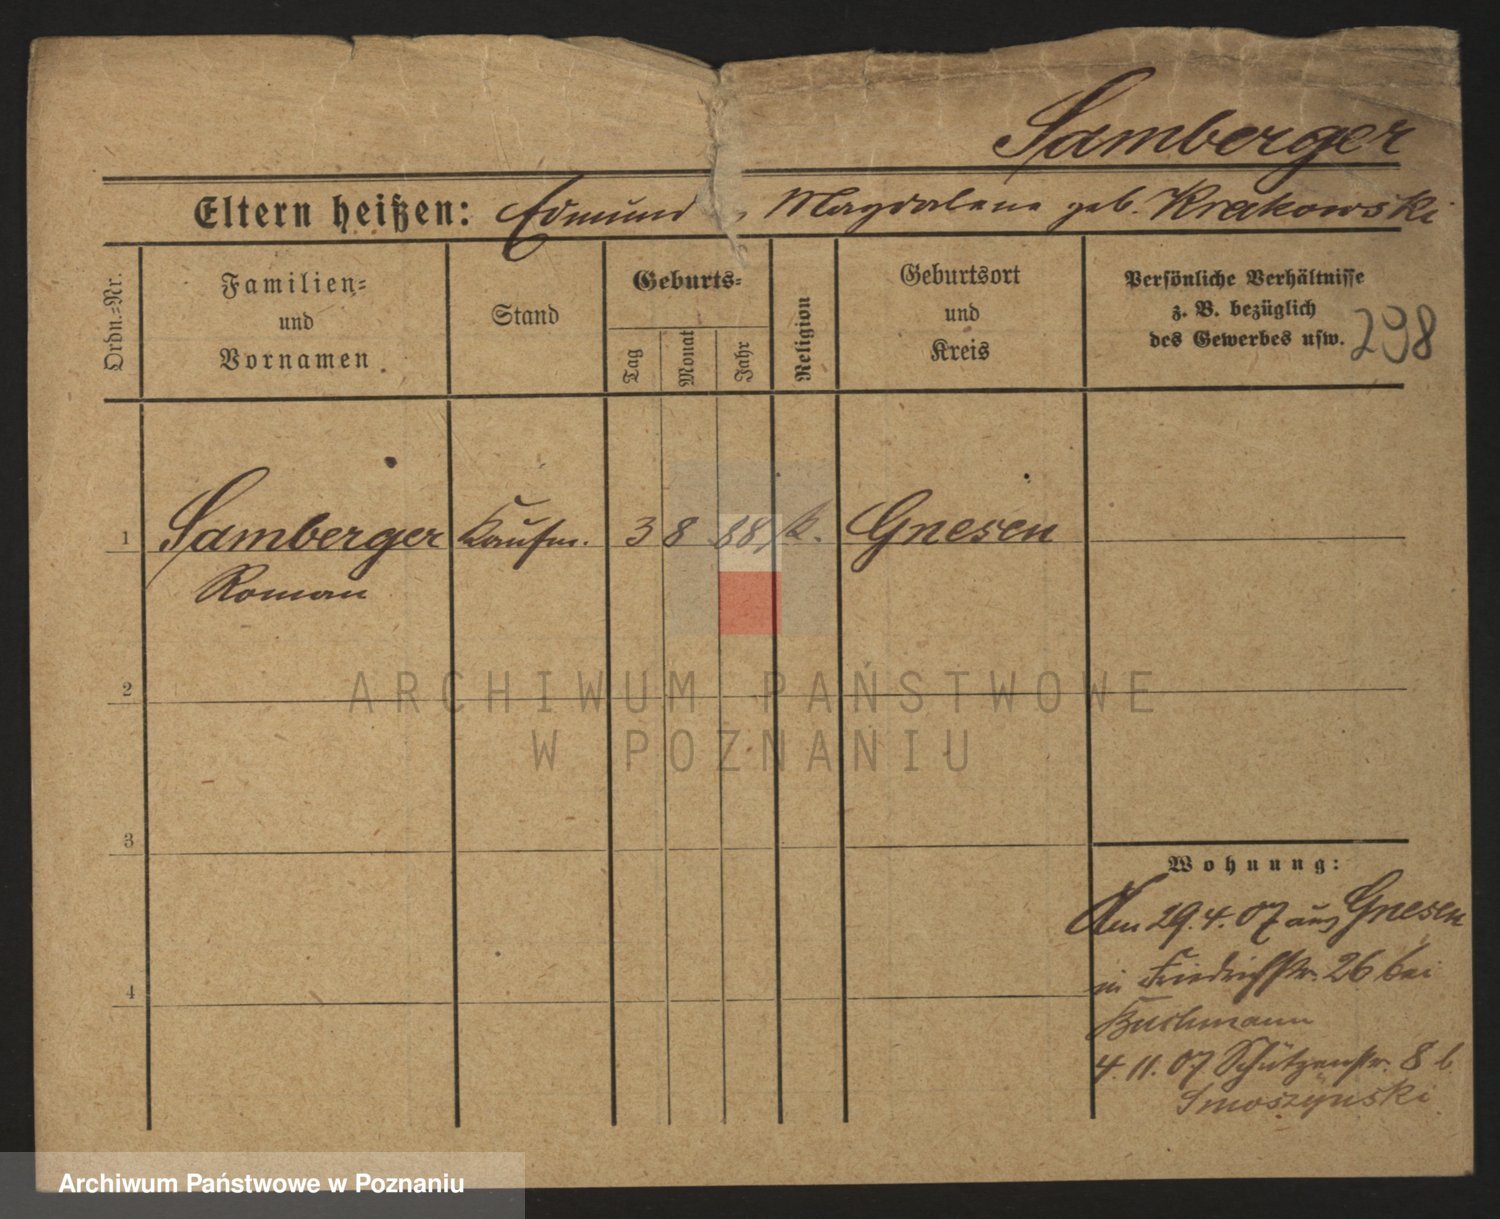 Samberger
Eltern heißen: Edmund, Magdalene geb. Krakowski
Ordn.-Nr.
Familien-
und
Vornamen
Stand
Geburts-
Tag
Monat
Jahr
Religion
Geburtsort
und
Kreis
Persönliche Verhältnisse
z. B. bezüglich
des Gewerbes usw.
298
1 Samberger Kaufm. 3 8 88 k. Gnesen
Roman
2
ARCHIWUM PAŃSTWOWE
W POZNANIU
3
Wohnung:
Am 29.4.07 aus Gnesen
in Friedrichstr. 26 bei
4
Buchmann
4.11.07 Schützenstr. 8 b.
Smoszynski
Archiwum Państwowe w Poznaniu